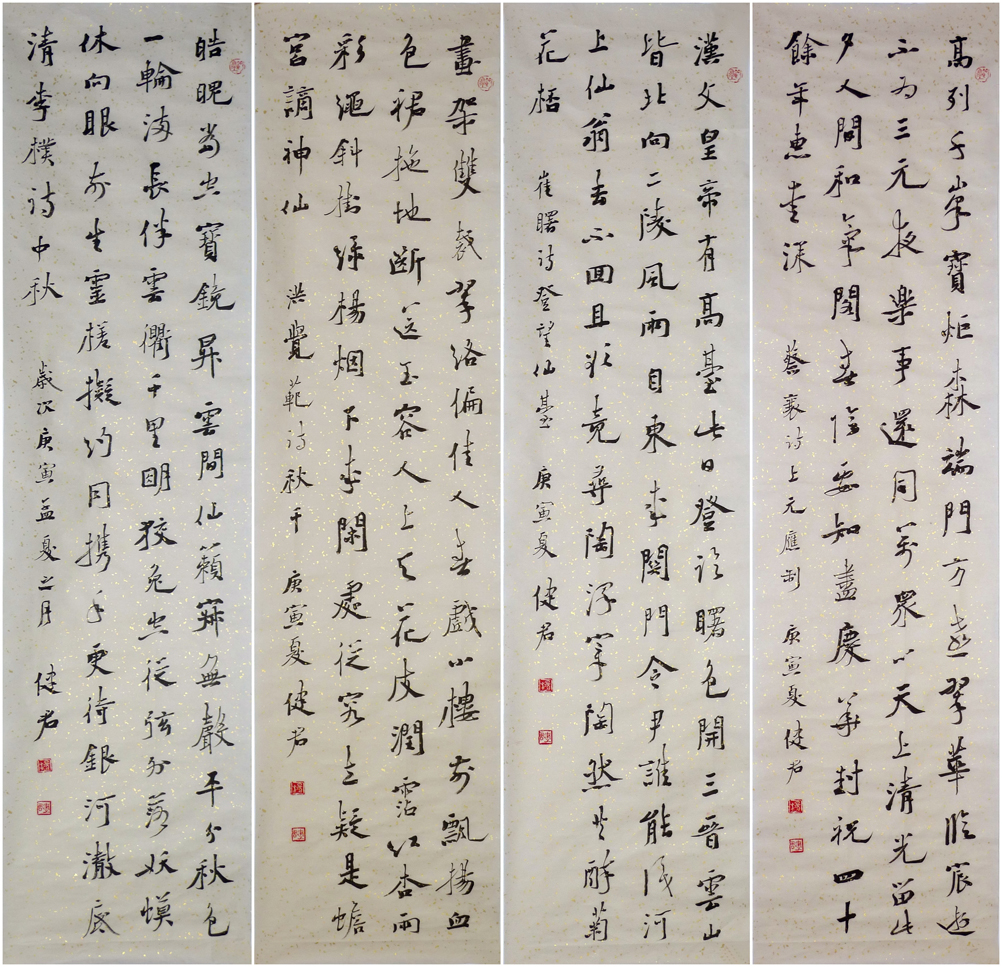 高列千峯寶炬森端門方喜翠華臨宸遊
不為三元夜樂事還同萬眾心天上清光留此
夕人間和氣閣春陰要知盡慶華封祝四十
餘年惠愛深 蔡襄詩上元應制 庚寅夏 健君
漢文皇帝有高臺此日登臨曙色開三晉雲山
皆北向二陵風雨自東來關門令尹誰能識河
上仙翁去不回且欲竟尋陶宰陶然共醉菊
花桮 崔曙詩登望仙臺 庚寅夏 健君
畫架雙裁翠絡偏佳人春戲小樓前飄揚血
色裙拖地斷送玉容人上天花皮潤霑紅杏雨
彩繩斜掛綠楊烟下來閑處從容立疑是蟾
宮謫神仙 洪覺範詩秋千 庚寅夏 健君
皓魄當空寶鏡昇雲間仙籟寂無聲平分秋色
一輪滿長伴雲衢千里明狡兔空從弦外落妖蟆
休向眼前生靈槎擬約同携手更待銀河澈底
清 李樸詩中秋 歲次庚寅孟夏之月 健君